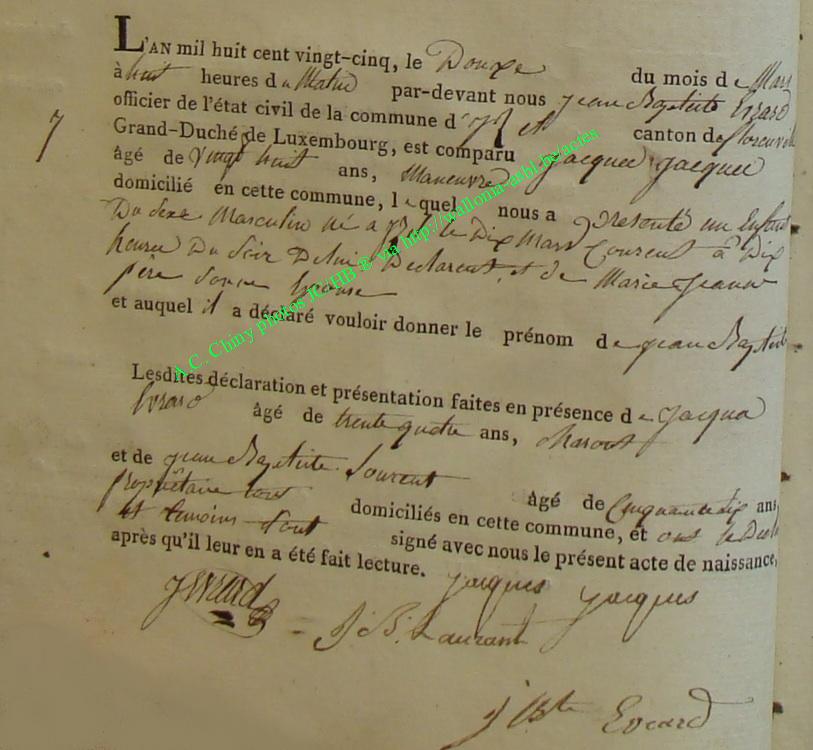 7
L'AN mil huit cent vingt-cinq, le Douze du mois de Mars
à huit heures du Matin par-devant nous jean Baptiste Evrard
officier de l'état civil de la commune d' canton de florenville
Grand-Duché de Luxembourg, est comparu jacques jacques
âgé de Vingt huit ans, Maneuvre
domicilié en cette commune, lequel nous a presenté un Enfant
Du Sexe Masculin né a le Dix Mars Courent à Dix
heures Du Soir De lui Declarent, et de Marie jeanne
père Epouse
et auquel il a déclaré vouloir donner le prénom de jean Baptiste
Lesdites déclaration et présentation faites en présence de jacque
Evrard âgé de trente quatre ans,
et de jean Baptiste Lourent âgé de Cinquante six ans
propriétaire tous domiciliés en cette commune, et ont le
et temoins signé avec nous le présent acte de naissance,
après qu'il leur en a été fait lecture.
jacques jacques
J Evrard
J B. Laurant
j Bte Evrard
A.C. Chiny photos JC HB © via http://wallonia-asbl.be/actes